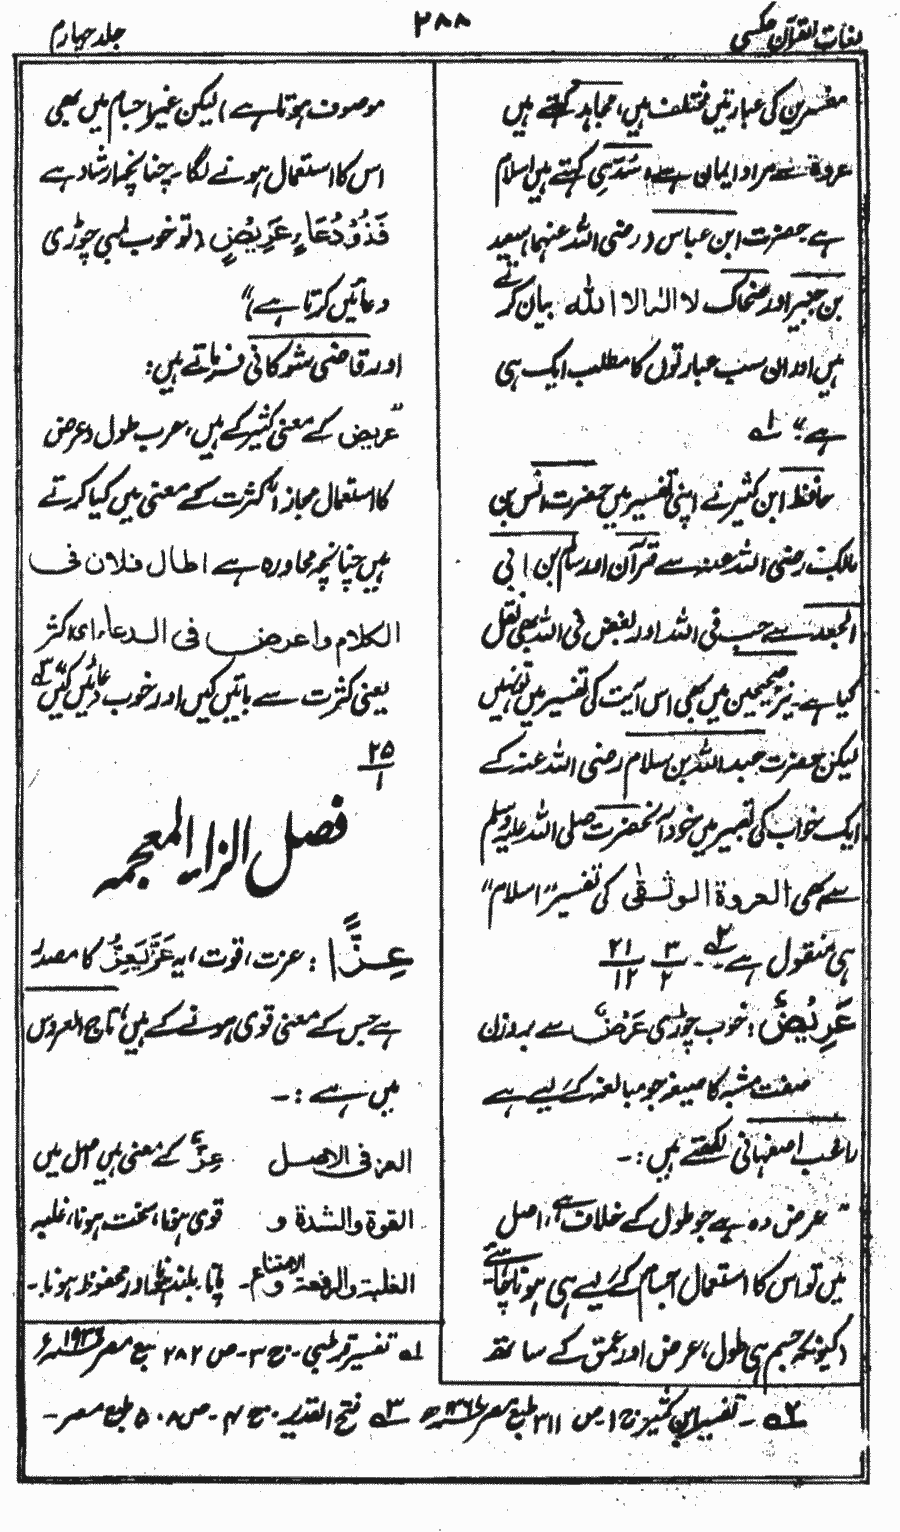 لغات القرآن عکسی
۲۸۸
جلد چہارم
مفسرین کی عبارتیں مختلف ہیں، مجاہد کہتے ہیں
عروۃ سے مراد ایمان ہے، سدی کہتے ہیں اسلام
ہے حضرت ابن عباس (رضی اللہ عنہما) سعید
بن جبیر اور ضحاک لا الہ الا اللہ بیان کرتے
ہیں اور ان سب عبارتوں کا مطلب ایک ہی
ہے" ؎۱
حافظ ابن کثیر نے اپنی تفسیر میں حضرت انس بن
مالک رضی اللہ عنہ سے قرآن اور سالم بن ابی
الجعد سے حب فی اللہ اور بغض فی اللہ بھی نقل
کیا ہے۔ نیز صحیحین میں بھی اس آیت کی تفسیر میں تو نہیں
لیکن حضرت عبد اللہ بن سلام رضی اللہ عنہ کے
ایک خواب کی تعبیر میں خود آنحضرت صلی اللہ علیہ وسلم
سے بھی العروۃ الوثقیٰ کی تفسیر "اسلام"
ہی منقول ہے ؎۲ - ۳/۲ ۲۱/۱۲
عَرِیْضٍ: خوب چوڑی عَرْضٌ سے بروزن
صفت مشبہ کا صیغہ جو مبالغہ کے لیے ہے
راغب اصفہانی لکھتے ہیں:۔
"عرض وہ ہے جو طول کے خلاف ہے، اصل
میں تو اس کا استعمال اجسام کے لیے ہی ہونا چاہیے
(کیونکہ جسم ہی طول، عرض اور عمق کے ساتھ
موصوف ہوتا ہے) لیکن غیر اجسام میں بھی
اس کا استعمال ہونے لگا۔ چنانچہ ارشاد ہے
فَذُوْ دُعَاءٍ عَرِیْضٍ (تو خوب لمبی چوڑی
دعائیں کرتا ہے)"
اور قاضی شوکانی فرماتے ہیں:
"عریض کے معنی کثیر کے ہیں، عرب طول و عرض
کا استعمال مجازاً کثرت کے معنی میں کیا کرتے
ہیں چنانچہ محاورہ ہے اطال فلان فی
الکلام واعرض فی الدعاء ای اکثر
یعنی کثرت سے باتیں کیں اور خوب دعائیں کیں" ؎۳
۲۵/۱
فصل الزاء المعجمہ
عِزًّا: عزت، قوت، یہ عَزَّ یَعِزُّ کا مصدر
ہے جس کے معنی قوی ہونے کے ہیں، تاج العروس
میں ہے:۔
العز فی الاصل عِزٌّ کے معنی ہیں اصل میں
القوۃ والشدۃ و قوی ہونا، سخت ہونا، غلبہ
الغلبۃ والرفعۃ و الامتناع۔ پانا۔ بلند ہونا اور محفوظ ہونا۔
؎۱ تفسیر قرطبی۔ ج ۳۔ ص ۲۸۲ طبع مصر ۱۹۳۶ء
؎۲۔ تفسیر ابن کثیر ج ۱۔ ص ۳۱۱ طبع مصر ؎۳ فتح القدیر۔ ج ۴۔ ص ۵۰۸ طبع مصر۔